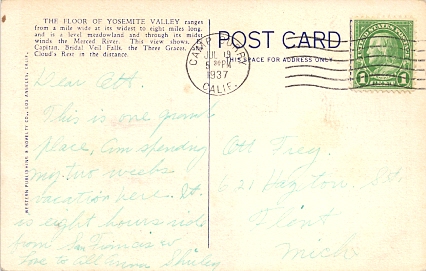 THE FLOOR OF YOSEMITE VALLEY ranges
from a mile wide at its widest to eight miles long,
and is a level meadowland and through its midst
winds the Merced River. This view shows El
Capitan, Bridal Veil Falls, the Three Graces, and
Cloud's Rest in the distance.
POST CARD
THIS SPACE FOR ADDRESS ONLY
CAMP CURRY
JUL 19
5 PM
1937
CALIF.
WESTERN PUBLISHING & NOVELTY CO., LOS ANGELES, CALIF.
Dear Ott.
This is one grand
place. Am spending
my two weeks
vacation here. It
is eight hours ride
from San Francisco
Love to all Anna Shirley
Ott Frey.
621 St.
Flint
Mich